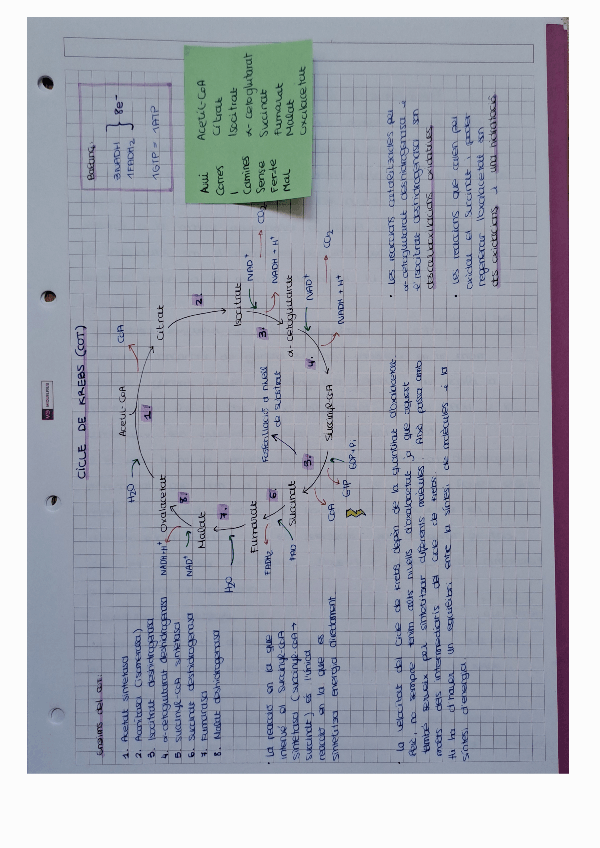 CICLE DE KREBS (COT)
Enzims del cicle
1. Acetat sintetasa
2. Aconitasa (isomerasa)
3. Isocitrat deshidrogenasa
4. α-cetoglutarat deshidrogenasa
5. Succinyl-CoA sintetasa
6. Succinat deshidrogenasa
7. Fumarasa
8. Malat deshidrogenasa
H2O
Acetil-CoA
CoA
1.
Oxalacetat
Citrat
2.
Isocitrat
NAD+
CO2
3.
NADH + H+
α-cetoglutarat
NAD+
CO2
4.
NADH + H+
Succinyl-CoA
Fosforilació a nivell
de substrat
5.
GDP+Pi
GTP
CoA
Succinat
6.
FAD
FADH2
Fumarat
7.
H2O
Malat
8.
NAD+
NADH+H+
Balanç
3NADH
1FADH2
8e-
1GTP = 1ATP
Avui Acetil-CoA
Corres Citrat
I Isocitrat
Camines α-cetoglutarat
Sense Succinat
Fer-te Fumarat
Mal Malat
Oxalacetat
• La reacció en la que
intervé el Succinyl-CoA
sintetasa (succinyl-CoA →
succinat) és l'única
reacció en la que es
sintetitza energia directament
• La velocitat del Cicle de Krebs depèn de la quantitat d'oxalacetat.
Però, no sempre tenim alts nivells d'oxalacetat ja que aquest
també serveix per sintetitzar diferents molècules. Això passa amb
molts dels intermediaris del cicle de Krebs.
Hi ha d'haver un equilibri entre la síntesi de molècules i la
síntesi d'energia.
• Les reaccions catalitzades per
α-cetoglutarat deshidrogenasa i
isocitrat deshidrogenasa són
descarboxilacions oxidatives.
• Les reaccions que calen per
oxidar el succinat i poder
regenerar l'oxalacetat són
dos oxidacions i una hidratació